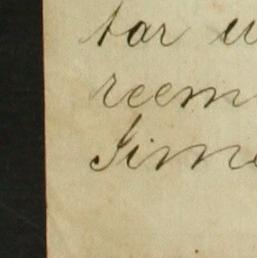 tar u
reem
Gime